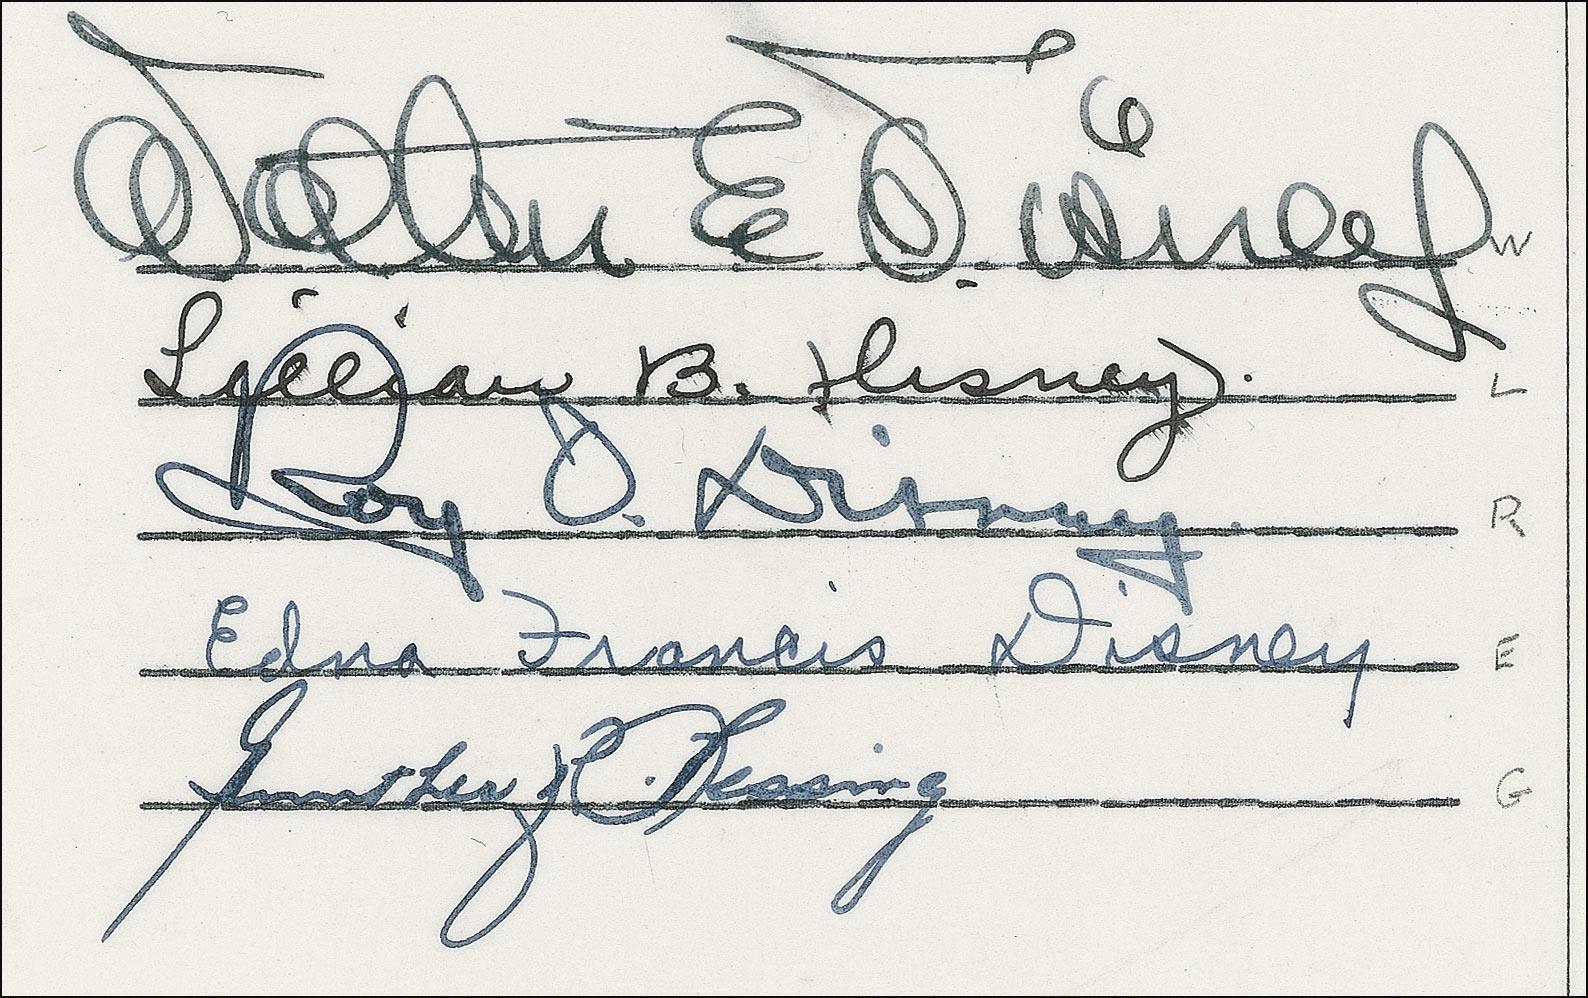 Walter E Disney W
Lillian B. Disney. L
Roy O. Disney. R
Edna Francis Disney E
Gunther R. Lessing G